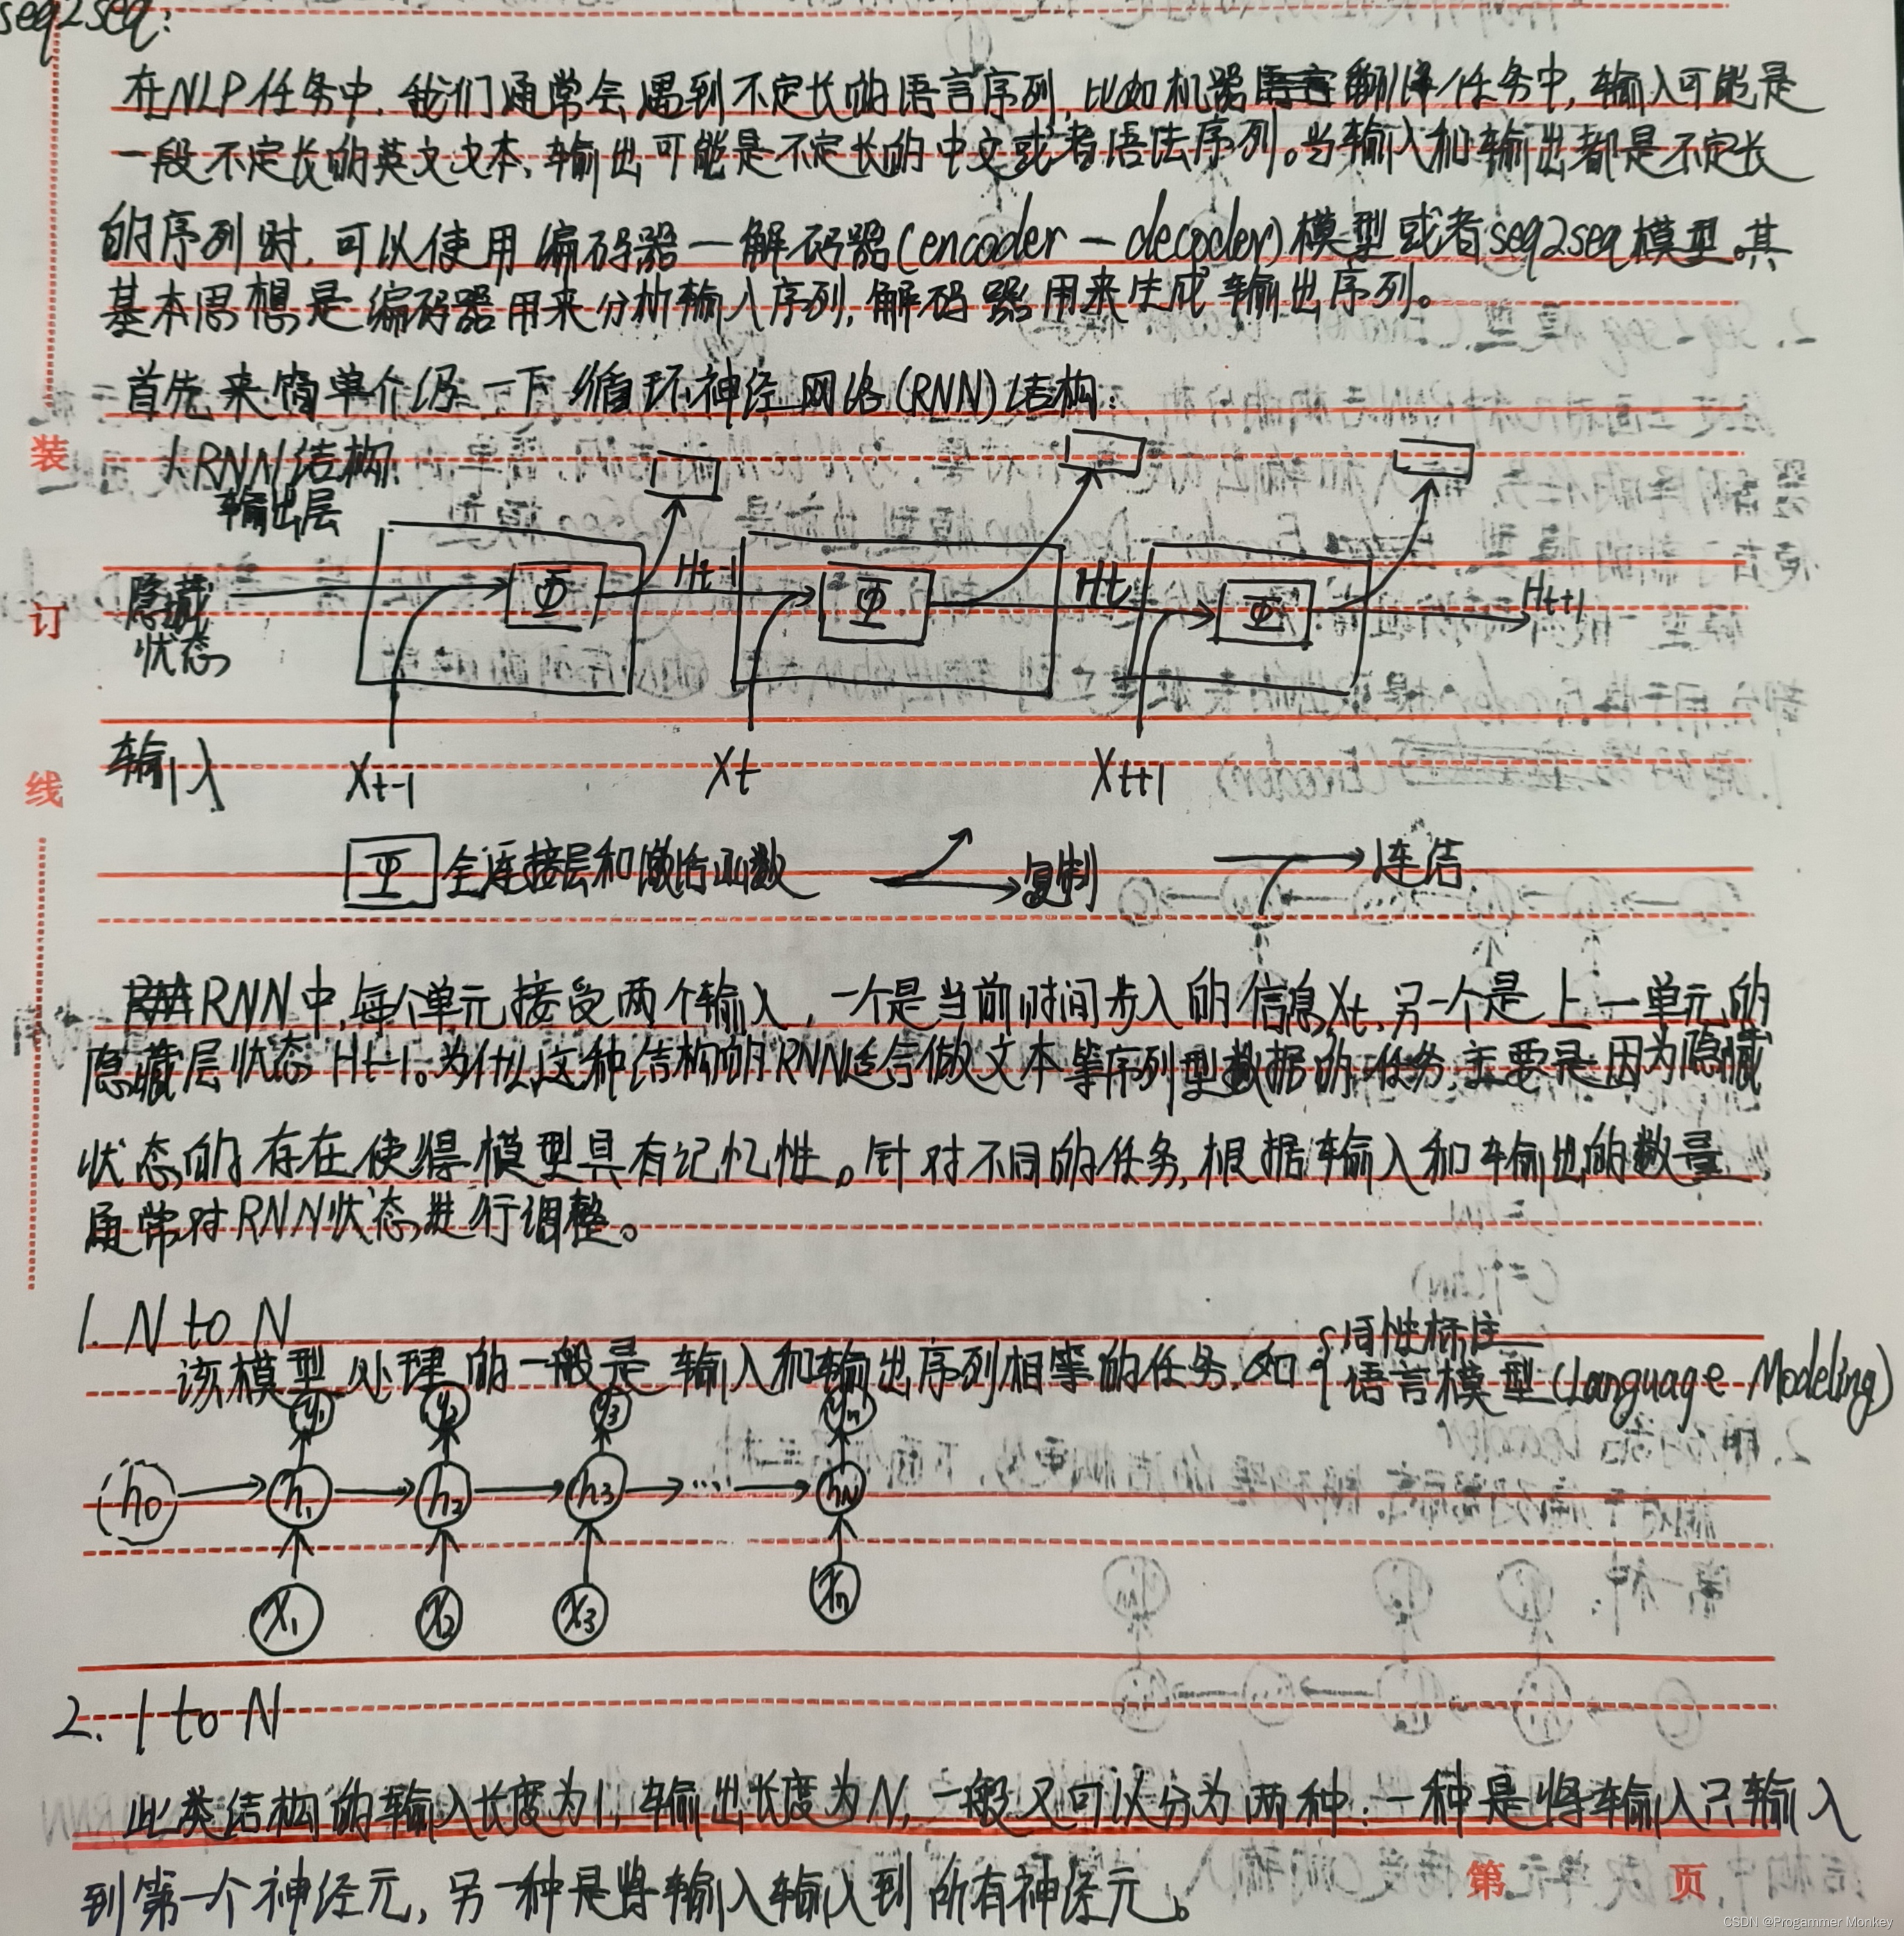 seq2seq:
在NLP任务中,我们通常会遇到不定长的语言序列,比如机器翻译任务中,输入可能是
一段不定长的英文文本,输出可能是不定长的中文或者语法序列。当输入和输出都是不定长
的序列时,可以使用编码器—解码器(encoder—decoder)模型或者seq2seq模型。其
基本思想是编码器用来分析输入序列,解码器用来生成输出序列。
首先来简单介绍一下循环神经网络(RNN)结构:
1.RNN结构
输出层
隐藏
状态
Φ Ht-1 Φ Ht Φ Ht+1
输入 Xt-1 Xt Xt+1
Φ 全连接层和激活函数 复制 连结
RNN中,每个单元接受两个输入,一个是当前时间步入的信息Xt,另一个是上一单元的
隐藏层状态Ht-1。为什么这种结构的RNN适合做文本等序列型数据的任务,主要是因为隐藏
状态的存在使得模型具有记忆性。针对不同的任务,根据输入和输出的数量,
通常对RNN状态进行调整。
1. N to N
该模型处理的一般是输入和输出序列相等的任务,如{词性标注
语言模型(Language Modeling)
y1 y2 y3 yn
h0 h1 h2 h3 ... hN
x1 x2 x3 xn
2. 1 to N
此类结构的输入长度为1,输出长度为N,一般又可以分为两种:一种是将输入只输入
到第一个神经元,另一种是将输入输入到所有神经元。
装
订
线
第 页
CSDN @Progammer Monkey